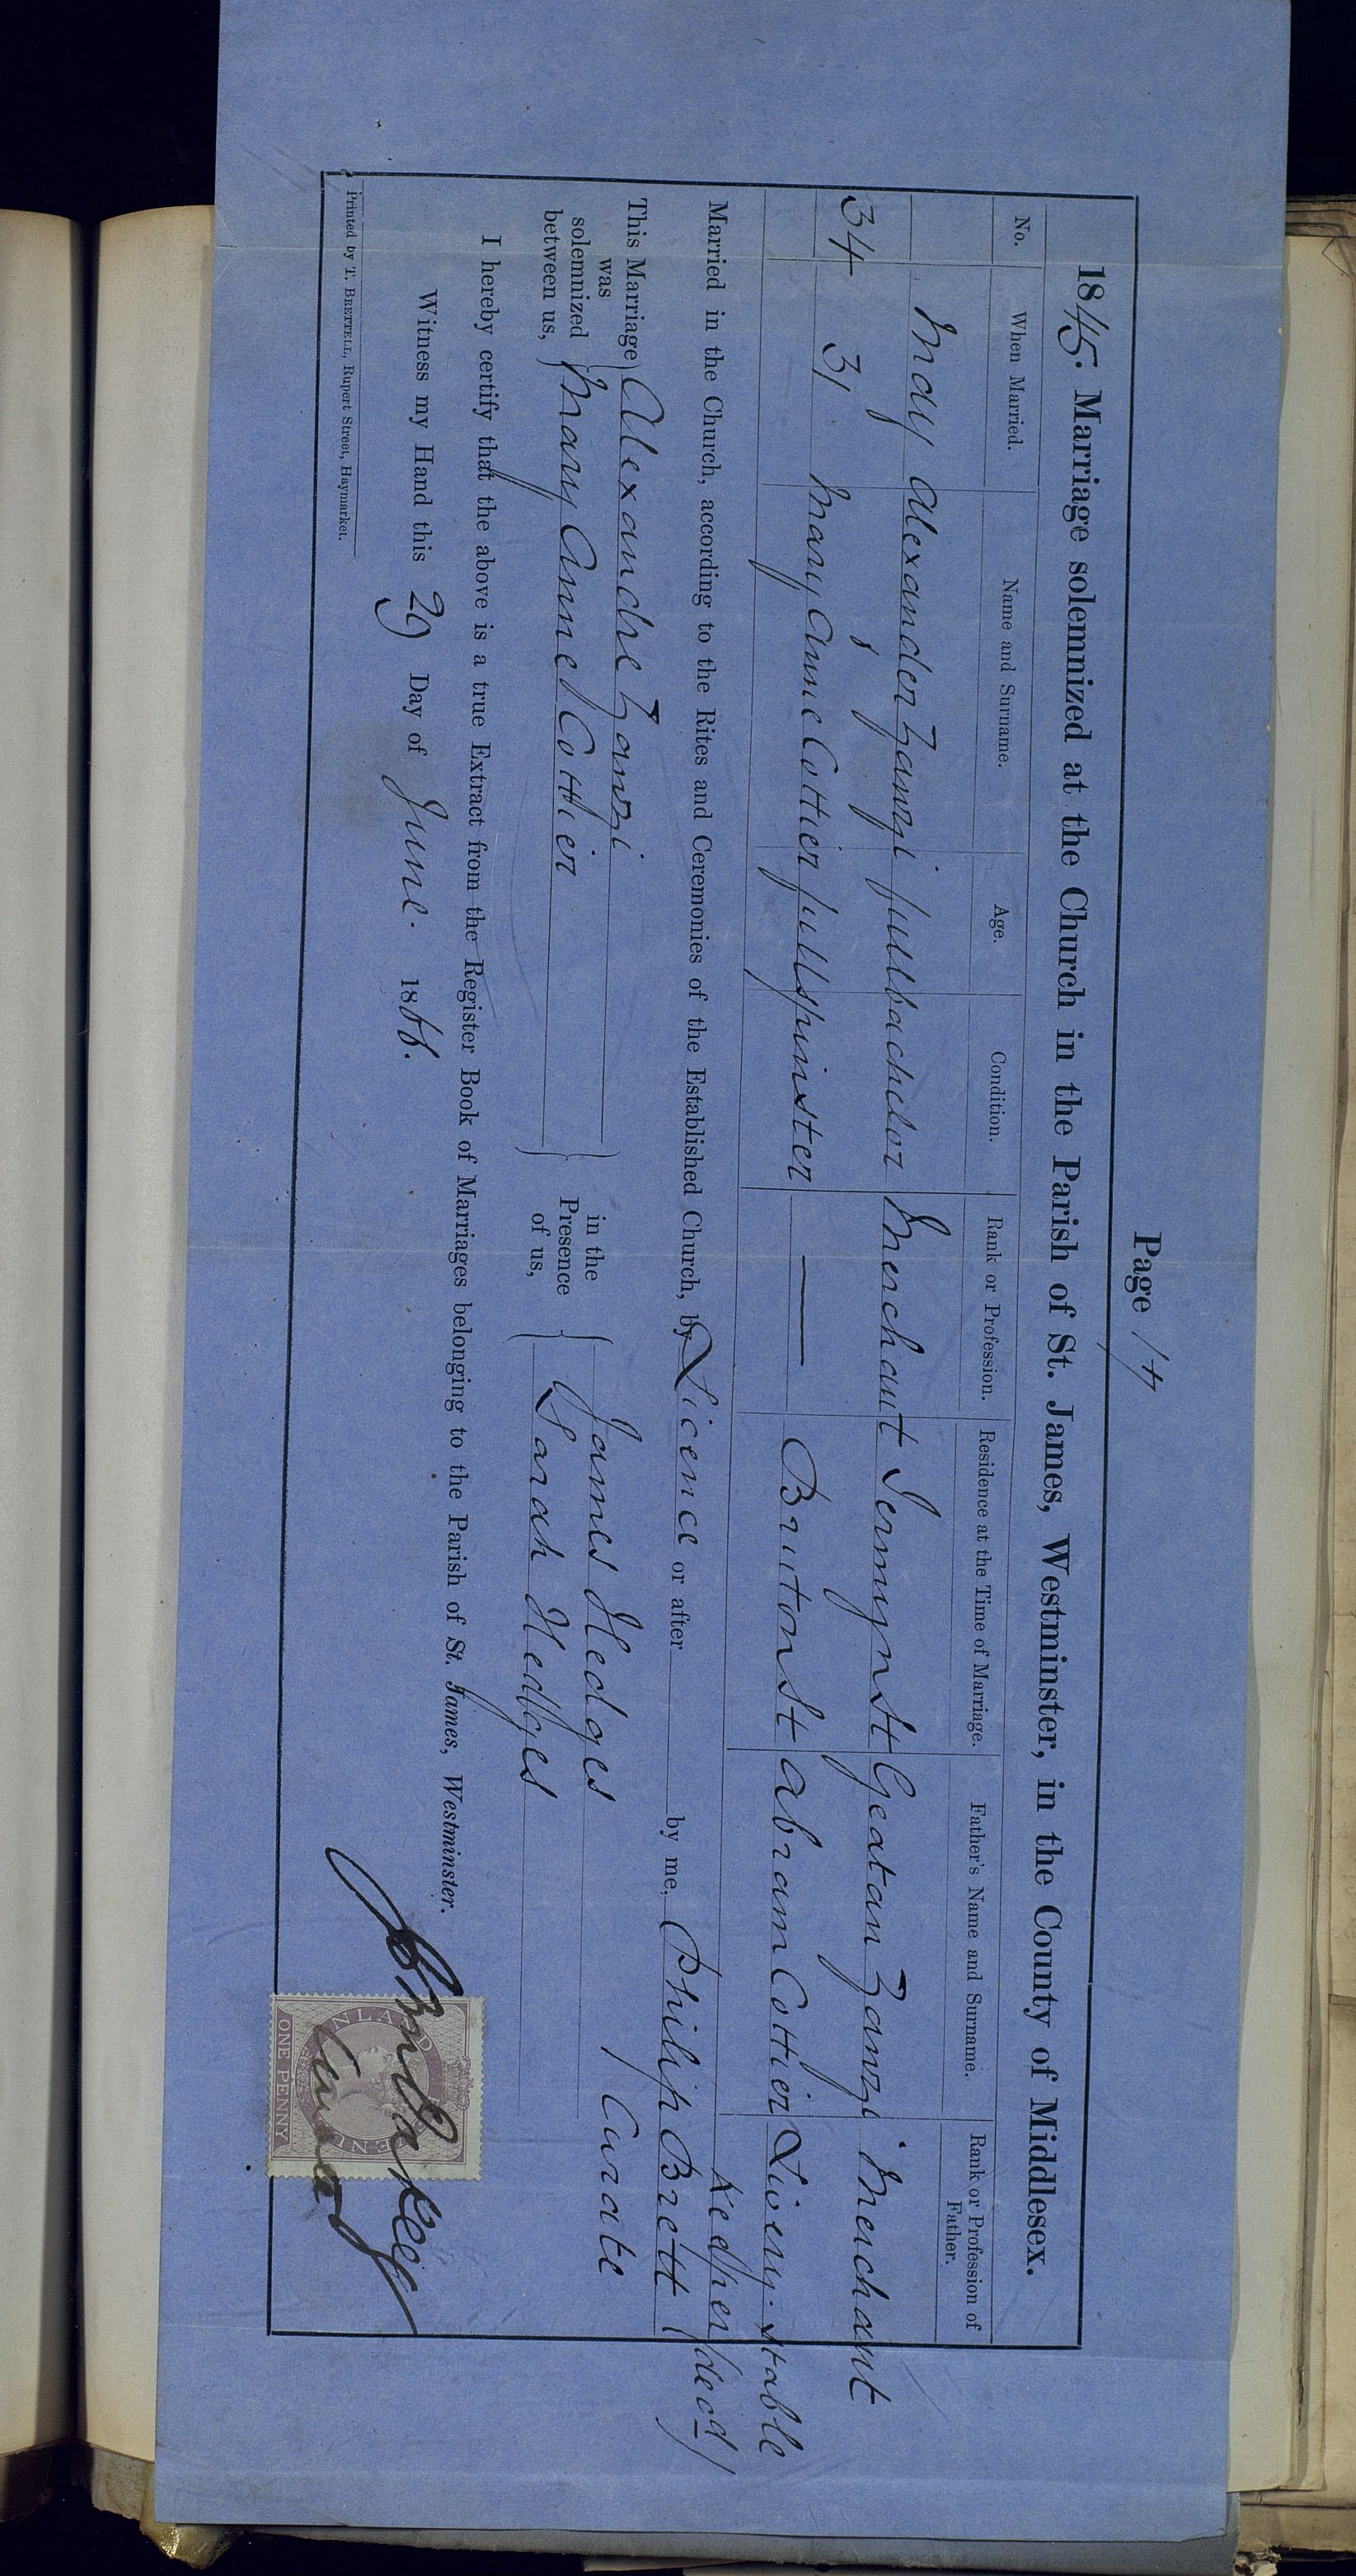 Page 17
1845. Marriage solemnized at the Church in the Parish of St. James, Westminster, in the County of Middlesex.
No. When Married. Name and Surname. Age. Condition. Rank or Profession. Residence at the Time of Marriage. Father's Name and Surname. Rank or Profession of Father.
May Alexander Zanzi full bachelor Merchant Jermyn St Geatan Zanzi Merchant
34 31 Mary Anne Cottier full spinster — Bruton St Abram Cottier Livery Stable
Keeper (decd)
Married in the Church, according to the Rites and Ceremonies of the Established Church, by Licence or after by me, Philip Brett
Curate
This Marriage was solemnized between us, Alexandre Zanzi in the Presence of us, James Hedges
Mary Anne Cottier Sarah Hedges
I hereby certify that the above is a true Extract from the Register Book of Marriages belonging to the Parish of St. James, Westminster.
Witness my Hand this 29 Day of June. 1866.
Curate
INLAND REVENUE
ONE PENNY
Printed by T. BRETTELL, Rupert Street, Haymarket.